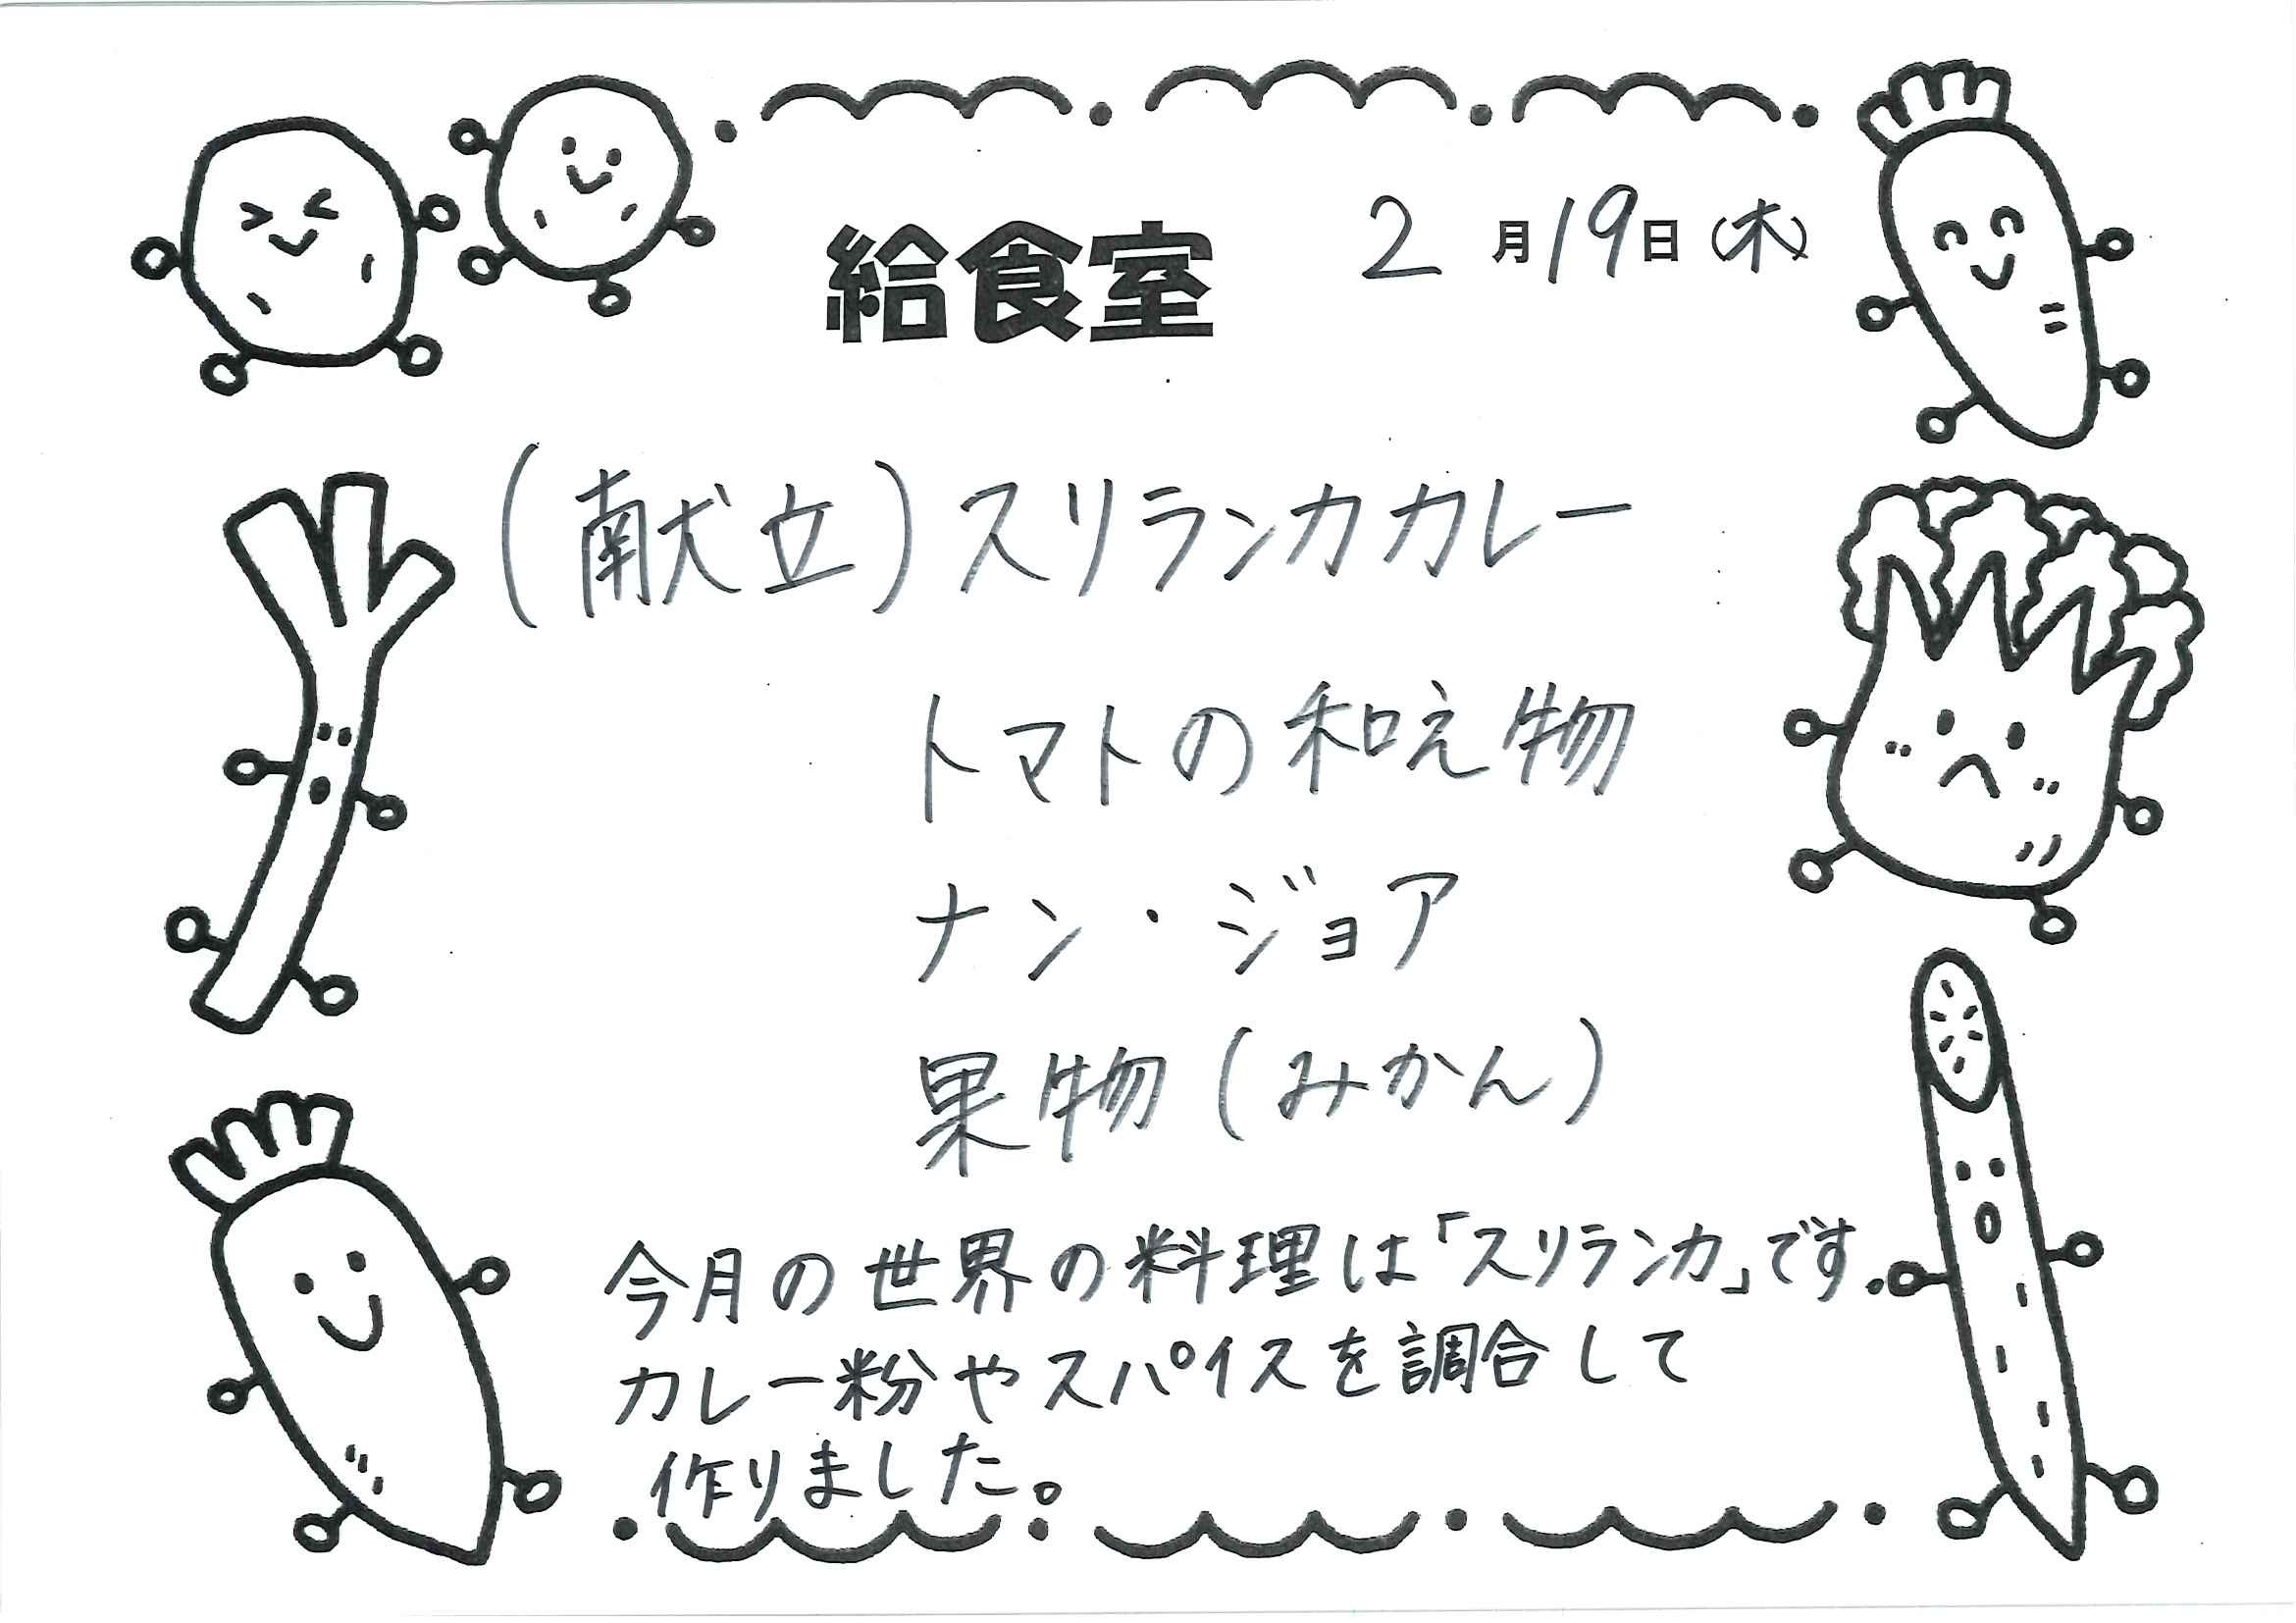 給食室
2月19日(木)
(献立)スリランカカレー
トマトの和え物
ナン・ジョア
果物(みかん)
今月の世界の料理は「スリランカ」です.
カレー粉やスパイスを調合して
作りました。